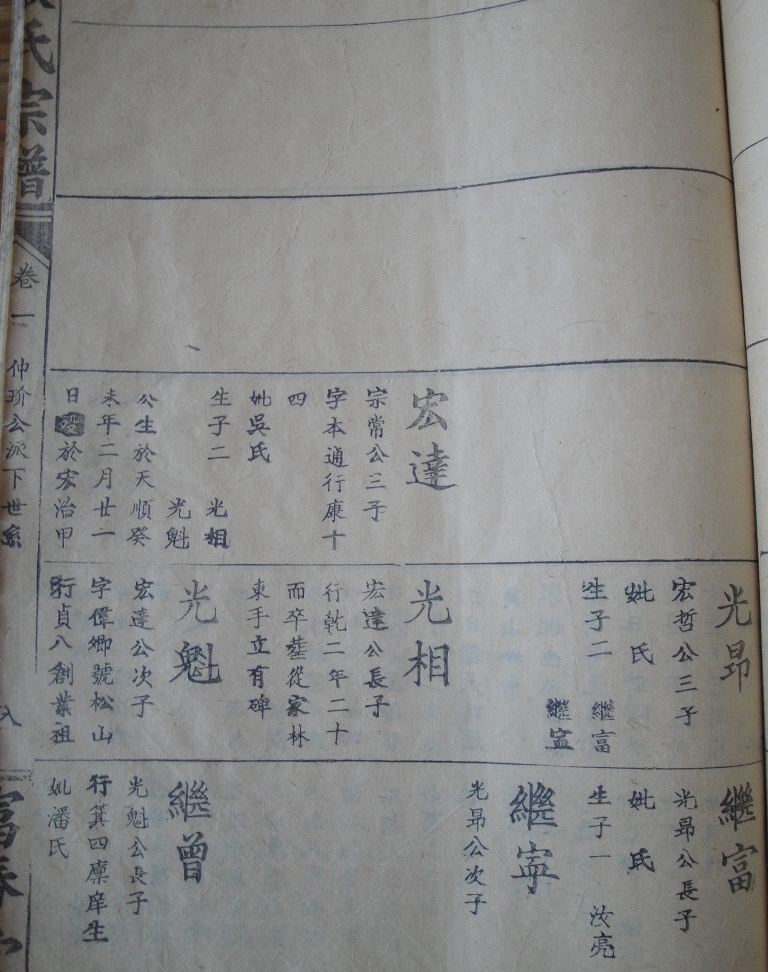 宏達
宗常公三子
字本通行康十
四
妣吳氏
生子二 光相
光魁
公生於天順癸
未年二月廿一
日 於宏治甲
光昂
宏哲公三子
妣 氏
生子二 繼富
繼寍
光相
宏達公長子
行乾二年二十
而卒塟從家林
東手立有碑
光魁
宏達公次子
字偉卿號松山
行貞八創業祖
繼富
光昂公長子
妣 氏
生子一 汝亮
繼寕
光昂公次子
繼曾
光魁公長子
行箕四廪庠生
妣潘氏
氏宗譜
卷一 仲玠公派下世系
八
富春